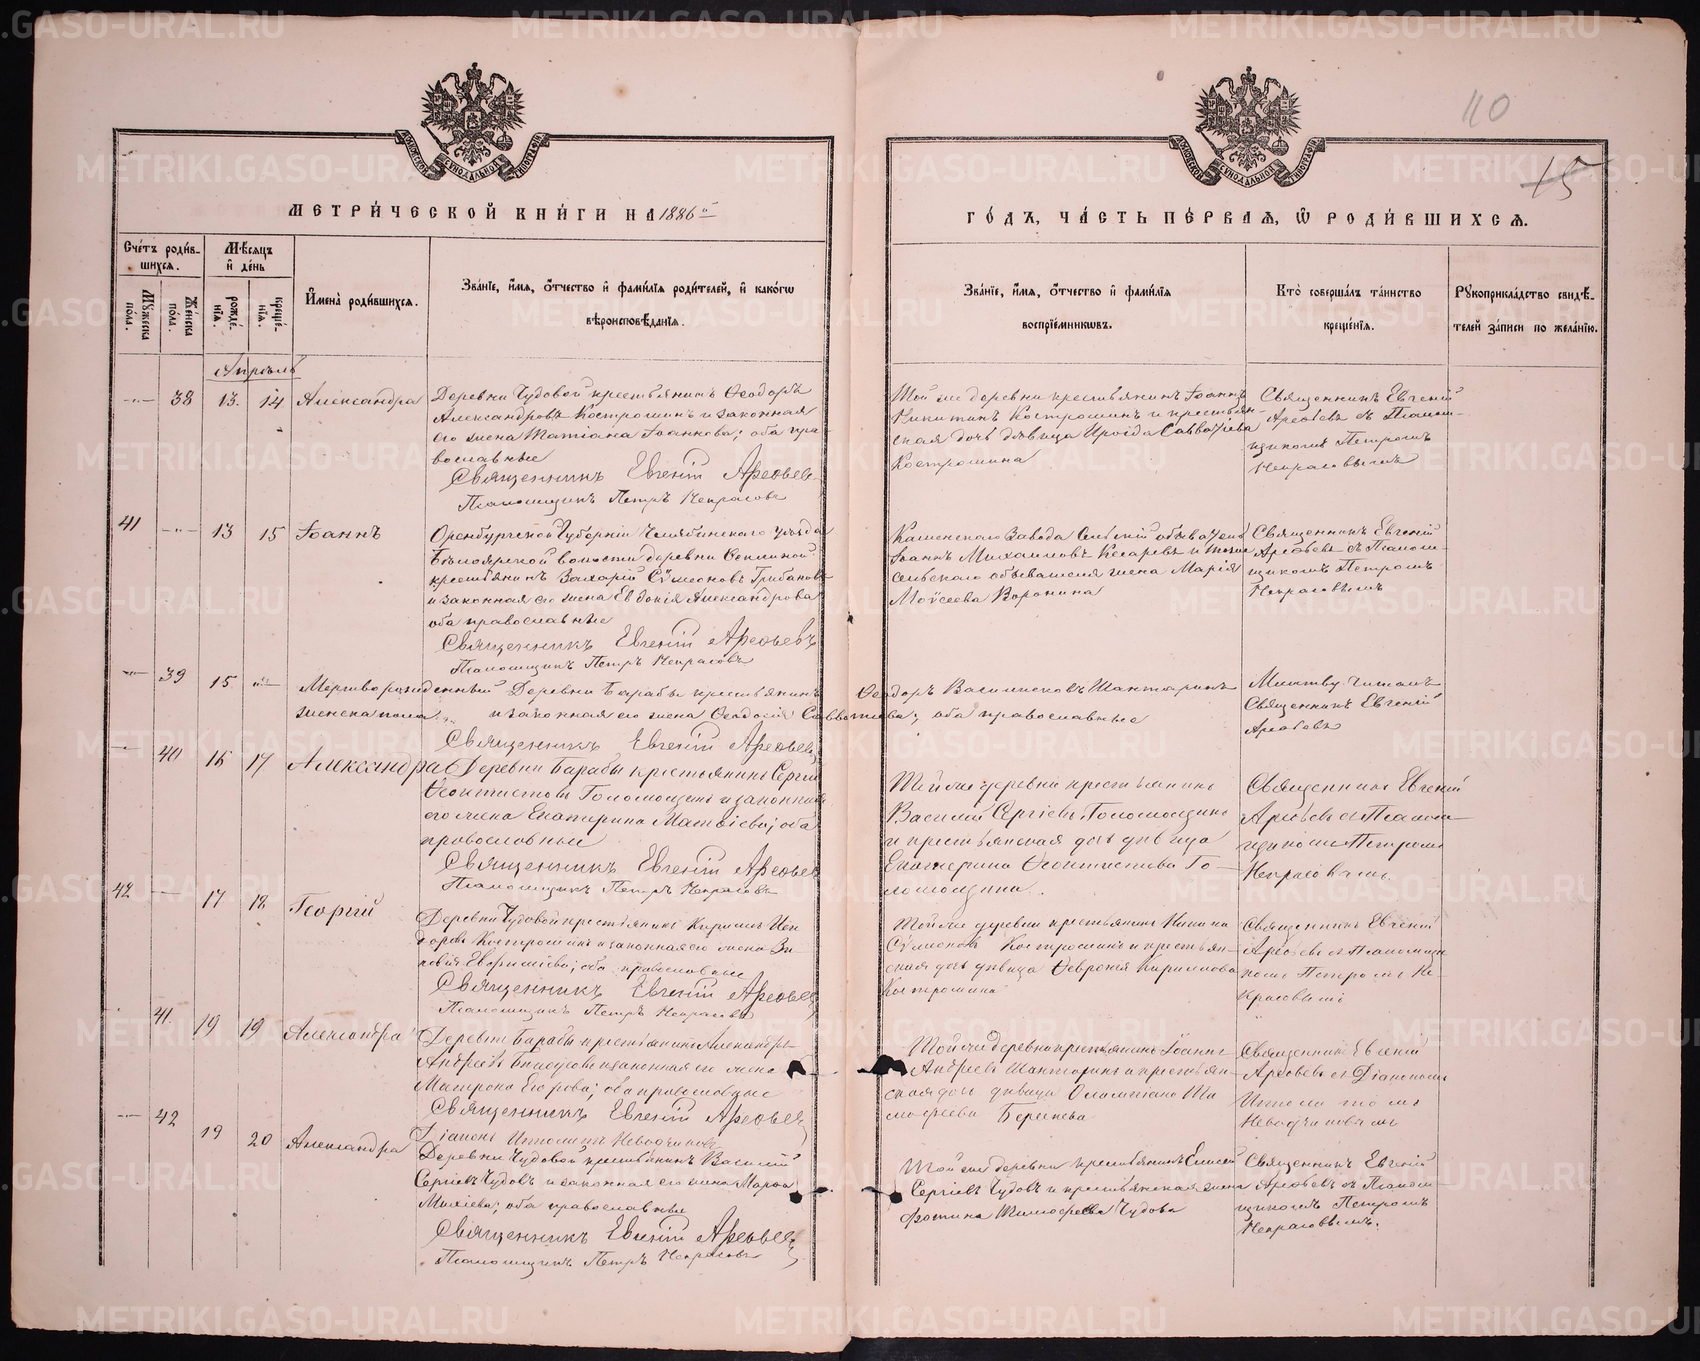 110
15
МЕТРИ́ЧЕСКОЙ КНИ́ГИ НА 1886й
ГО́ДЪ, ЧА́СТЬ ПЕ́РВАЯ, Ѿ РОДИ́ВШИХСЯ.
Сче́тъ роди́в-
шихся.
Мꙋжеска пола.
Женска пола.
Мѣ́сяцъ и де́нь
рожде́-
нїя.
креще́-
нїя.
Имена̀ роди́вшихся.
Зва́нїе, и́мя, о́тчество и фами́лїя роди́телей, и како́гѡ
вѣроисповѣ́данїя.
Зва́нїе, и́мя, о́тчество и фами́лїя
воспрїе́мникѡвъ.
Кто̀ соверша́лъ та́инство
креще́нїя.
Рꙋкоприкла́дство свидѣ́-
телей за́писи по жела́нїю.
Апрѣль
38 13. 14 Александра
Деревни Чудовой крестьянинъ Ѳеодоръ
Александровъ Костромин и законная
его жена Татіана Іоаннова; оба пра
вославные
Священникъ Евгеній Арефьевъ
Псаломщикъ Петръ Некрасовъ
Той же деревни крестьянинъ Іоаннъ
Никитинъ Костромин и крестьян-
ская дочь дѣвица
Костромина
Священникъ Евгеній
Арефьевъ съ Псалом-
щикомъ Петромъ
Некрасовымъ
41 13 15 Іоаннъ
Оренбургской Губерніи Челябинскаго уѣзда
Бѣлоярской волости деревни
крестьянинъ Захарій Сѵмеоновъ Грибановъ
и законная его жена Евдокія Александрова
оба православные
Священникъ Евгеній Арефьевъ
Псаломщикъ Петръ Некрасовъ
Каменскаго Завода Сельскій обыватель
Іоаннъ Михаиловъ Косаревъ и
сельскаго обывателя жена Марія
Моѵсеева Воронина
Священникъ Евгеній
Арефьевъ съ Псалом-
щикомъ Петромъ
Некрасовымъ
39 15 Мертворожденный Деревни Барабы крестьянинъ Ѳеодоръ Васильевъ Шантаринъ
женска пола и законная его жена Ѳеодосія Савватиева; оба православные
Священникъ Евгеній Арефьевъ
Молитву читалъ
Священникъ Евгеній
Арефьевъ
40 16 17 Александра
Деревни Барабы крестьянинъ Сергій
Ѳеоктистовъ Голомолзинъ и законная
его жена Екатерина Матвіева; оба
православные
Священникъ Евгеній Арефьевъ
Псаломщикъ Петръ Некрасовъ
Той же деревни крестьянинъ
Василій Сергіевъ Голомолзинъ
и крестьянская дочь дѣвица
Екатерина Ѳеоктистова Го-
ломолзина.
Священникъ Евгеній
Арефьевъ съ Псалом-
щикомъ Петромъ
Некрасовымъ.
42 17 18 Георгій
Деревни Чудовой крестьянинъ Кириллъ
Костроминъ и законная его жена Зи-
новія Евфиміева; оба православные
Священникъ Евгеній Арефьевъ
Псаломщикъ Петръ Некрасовъ
Той же деревни крестьянинъ Никита
Сѵмеоновъ Костроминъ и крестьян-
ская дочь дѣвица Ѳеврonія Кириллова
Костромина
Священникъ Евгеній
Арефьевъ съ Псаломщи
комъ Петромъ Не-
красовымъ
41. 19 19 Александра
Деревни Барабы крестьянинъ Александръ
Андреевъ и законная его жена
Матрона Егорова; оба православные
Священникъ Евгеній Арефьевъ
Діаконъ
Той же деревни крестьянинъ Іоаннъ
Андреевъ Шантаринъ и крестьян-
ская дочь дѣвица
Священникъ Евгеній
Арефьевъ съ Діакономъ
42 19 20 Александра
Деревни Чудовой крестьянинъ Василій
Сергіевъ Чудовъ и законная его жена Марѳа
оба православные
Священникъ Евгеній Арефьевъ
Псаломщикъ Петръ Некрасовъ
Той же деревни крестьянинъ Елисей
Сергіевъ Чудовъ и крестьянская жена
Фотина Тимофеева Чудова
Священникъ Евгеній
Арефьевъ съ Псалом-
щикомъ Петромъ
Некрасовымъ.
METRIKI.GASO-URAL.RU